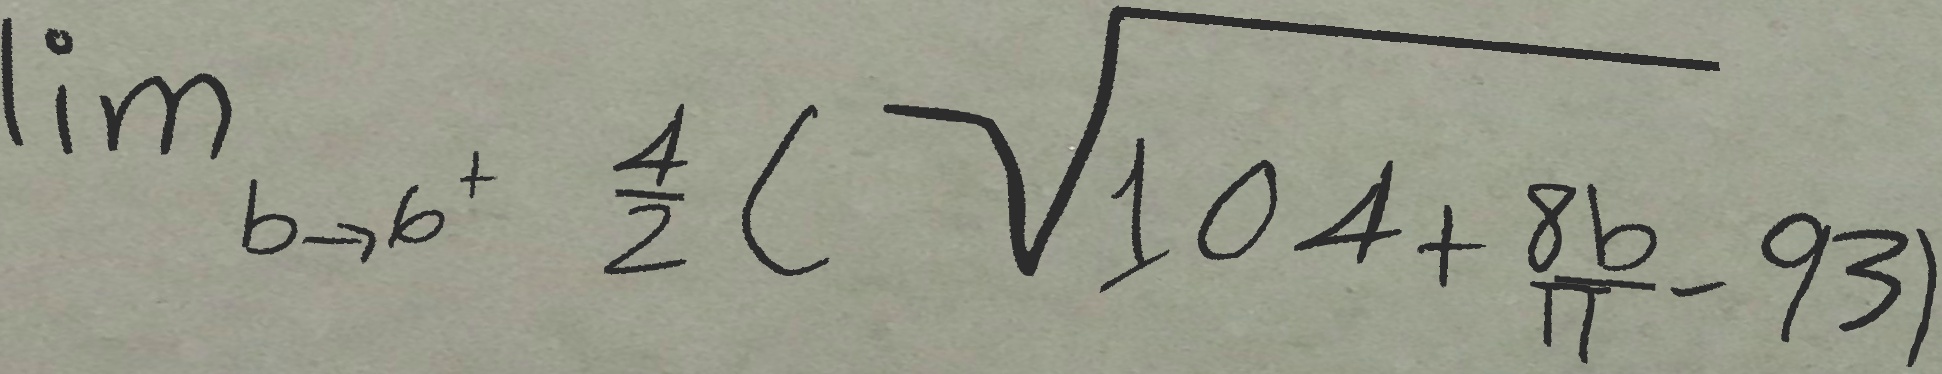 \lim_{b \to 6^+} \frac{4}{2} ( \sqrt{104 + \frac{8b}{\pi}} - 93 )